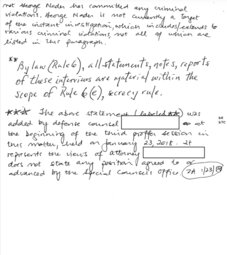 not George Nader has committed any criminal
violations. George Nader is not currently a target
of the instant investigation, which includes/extends to
various criminal violations, not all of which are
listed in this paragraph.
** By law (Rule 6), all statements, notes, reports
of these interviews are material within the
scope of Rule 6(e), secrecy rule.
*** The above statement (labeled **) was
added by defense counsel at
the beginning of the third proffer session in
this matter, held on January 23, 2018. It
represents the views of attorney
does not state any position agreed to or
advanced by the Special Counsel's Office. ZA 1/23/18